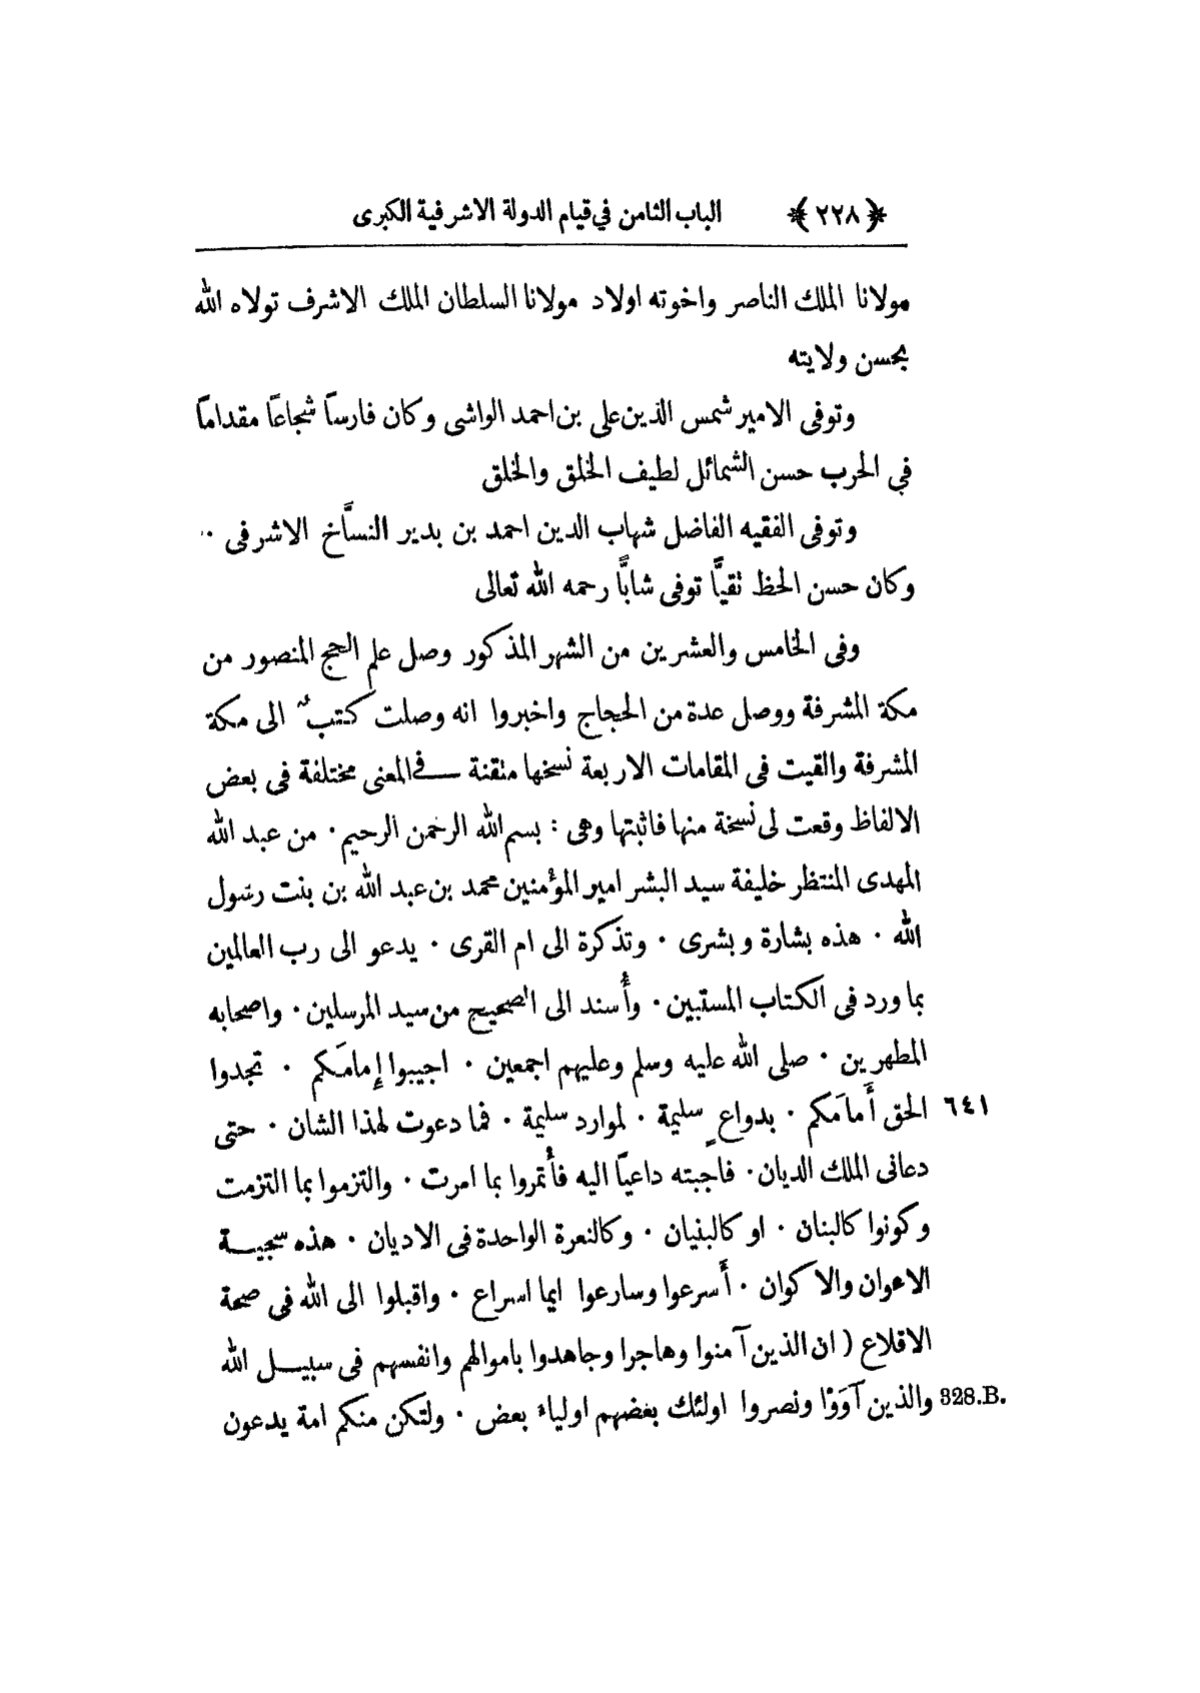 ﴿ ٢٢٨ ﴾ الباب الثامن في قيام الدولة الاشرفية الكبرى
مولانا الملك الناصر واخوته اولاد مولانا السلطان الملك الاشرف تولاه الله
بحسن ولايته
وتوفى الامير شمس الذين على بن احمد الواشى وكان فارساً شجاعاً مقداماً
في الحرب حسن الشمائل لطيف الخلق والخلق
وتوفى الفقيه الفاضل شهاب الدين احمد بن بدير النسَّاخ الاشرفى ٠
وكان حسن الحظ تقيًّا توفى شابًّا رحمه الله تعالى
وفى الخامس والعشرين من الشهر المذكور وصل علم الحج المنصور من
مكة المشرفة ووصل عدة من الحجاج واخبروا انه وصلت كتب الى مكة
المشرفة والقيت فى المقامات الاربعة نسخها متقنة في المعنى مختلفة فى بعض
الالفاظ وقعت لى نسخة منها فاثبتها وهى : بسم الله الرحمن الرحيم ٠ من عبد الله
المهدى المنتظر خليفة سيد البشر امير المؤمنين محمد بن عبد الله بن بنت رسول
الله ٠ هذه بشارة وبشرى ٠ وتذكرة الى ام القرى ٠ يدعو الى رب العالمين
بما ورد فى الكتاب المستبين ٠ وأُسند الى الصحيح من سيد المرسلين ٠ واصحابه
المطهرين ٠ صلى الله عليه وسلم وعليهم اجمعين ٠ اجيبوا إِمامَكم ٠ تجدوا
الحق أَمامَكم ٠ بدواعٍ سليمة ٠ لموارد سليمة ٠ فما دعوت لهذا الشان ٠ حتى ٦٤١
دعانى الملك الديان ٠ فاجبته داعياً اليه فأتمروا بما امرت ٠ والتزموا بما التزمت
وكونوا كالبنان ٠ او كالبنيان ٠ وكالنعرة الواحدة فى الاديان ٠ هذه سجية
الاعوان والاكوان ٠ أَسرعوا وسارعوا ايما اسراع ٠ واقبلوا الى الله فى صحة
الاقلاع ( ان الذين آمنوا وهاجرا وجاهدوا باموالهم وانفسهم فى سبيل الله
والذين آوَوْا ونصروا اولئك بعضهم اولياء بعض ٠ ولتكن منكم امة يدعون 328.B.